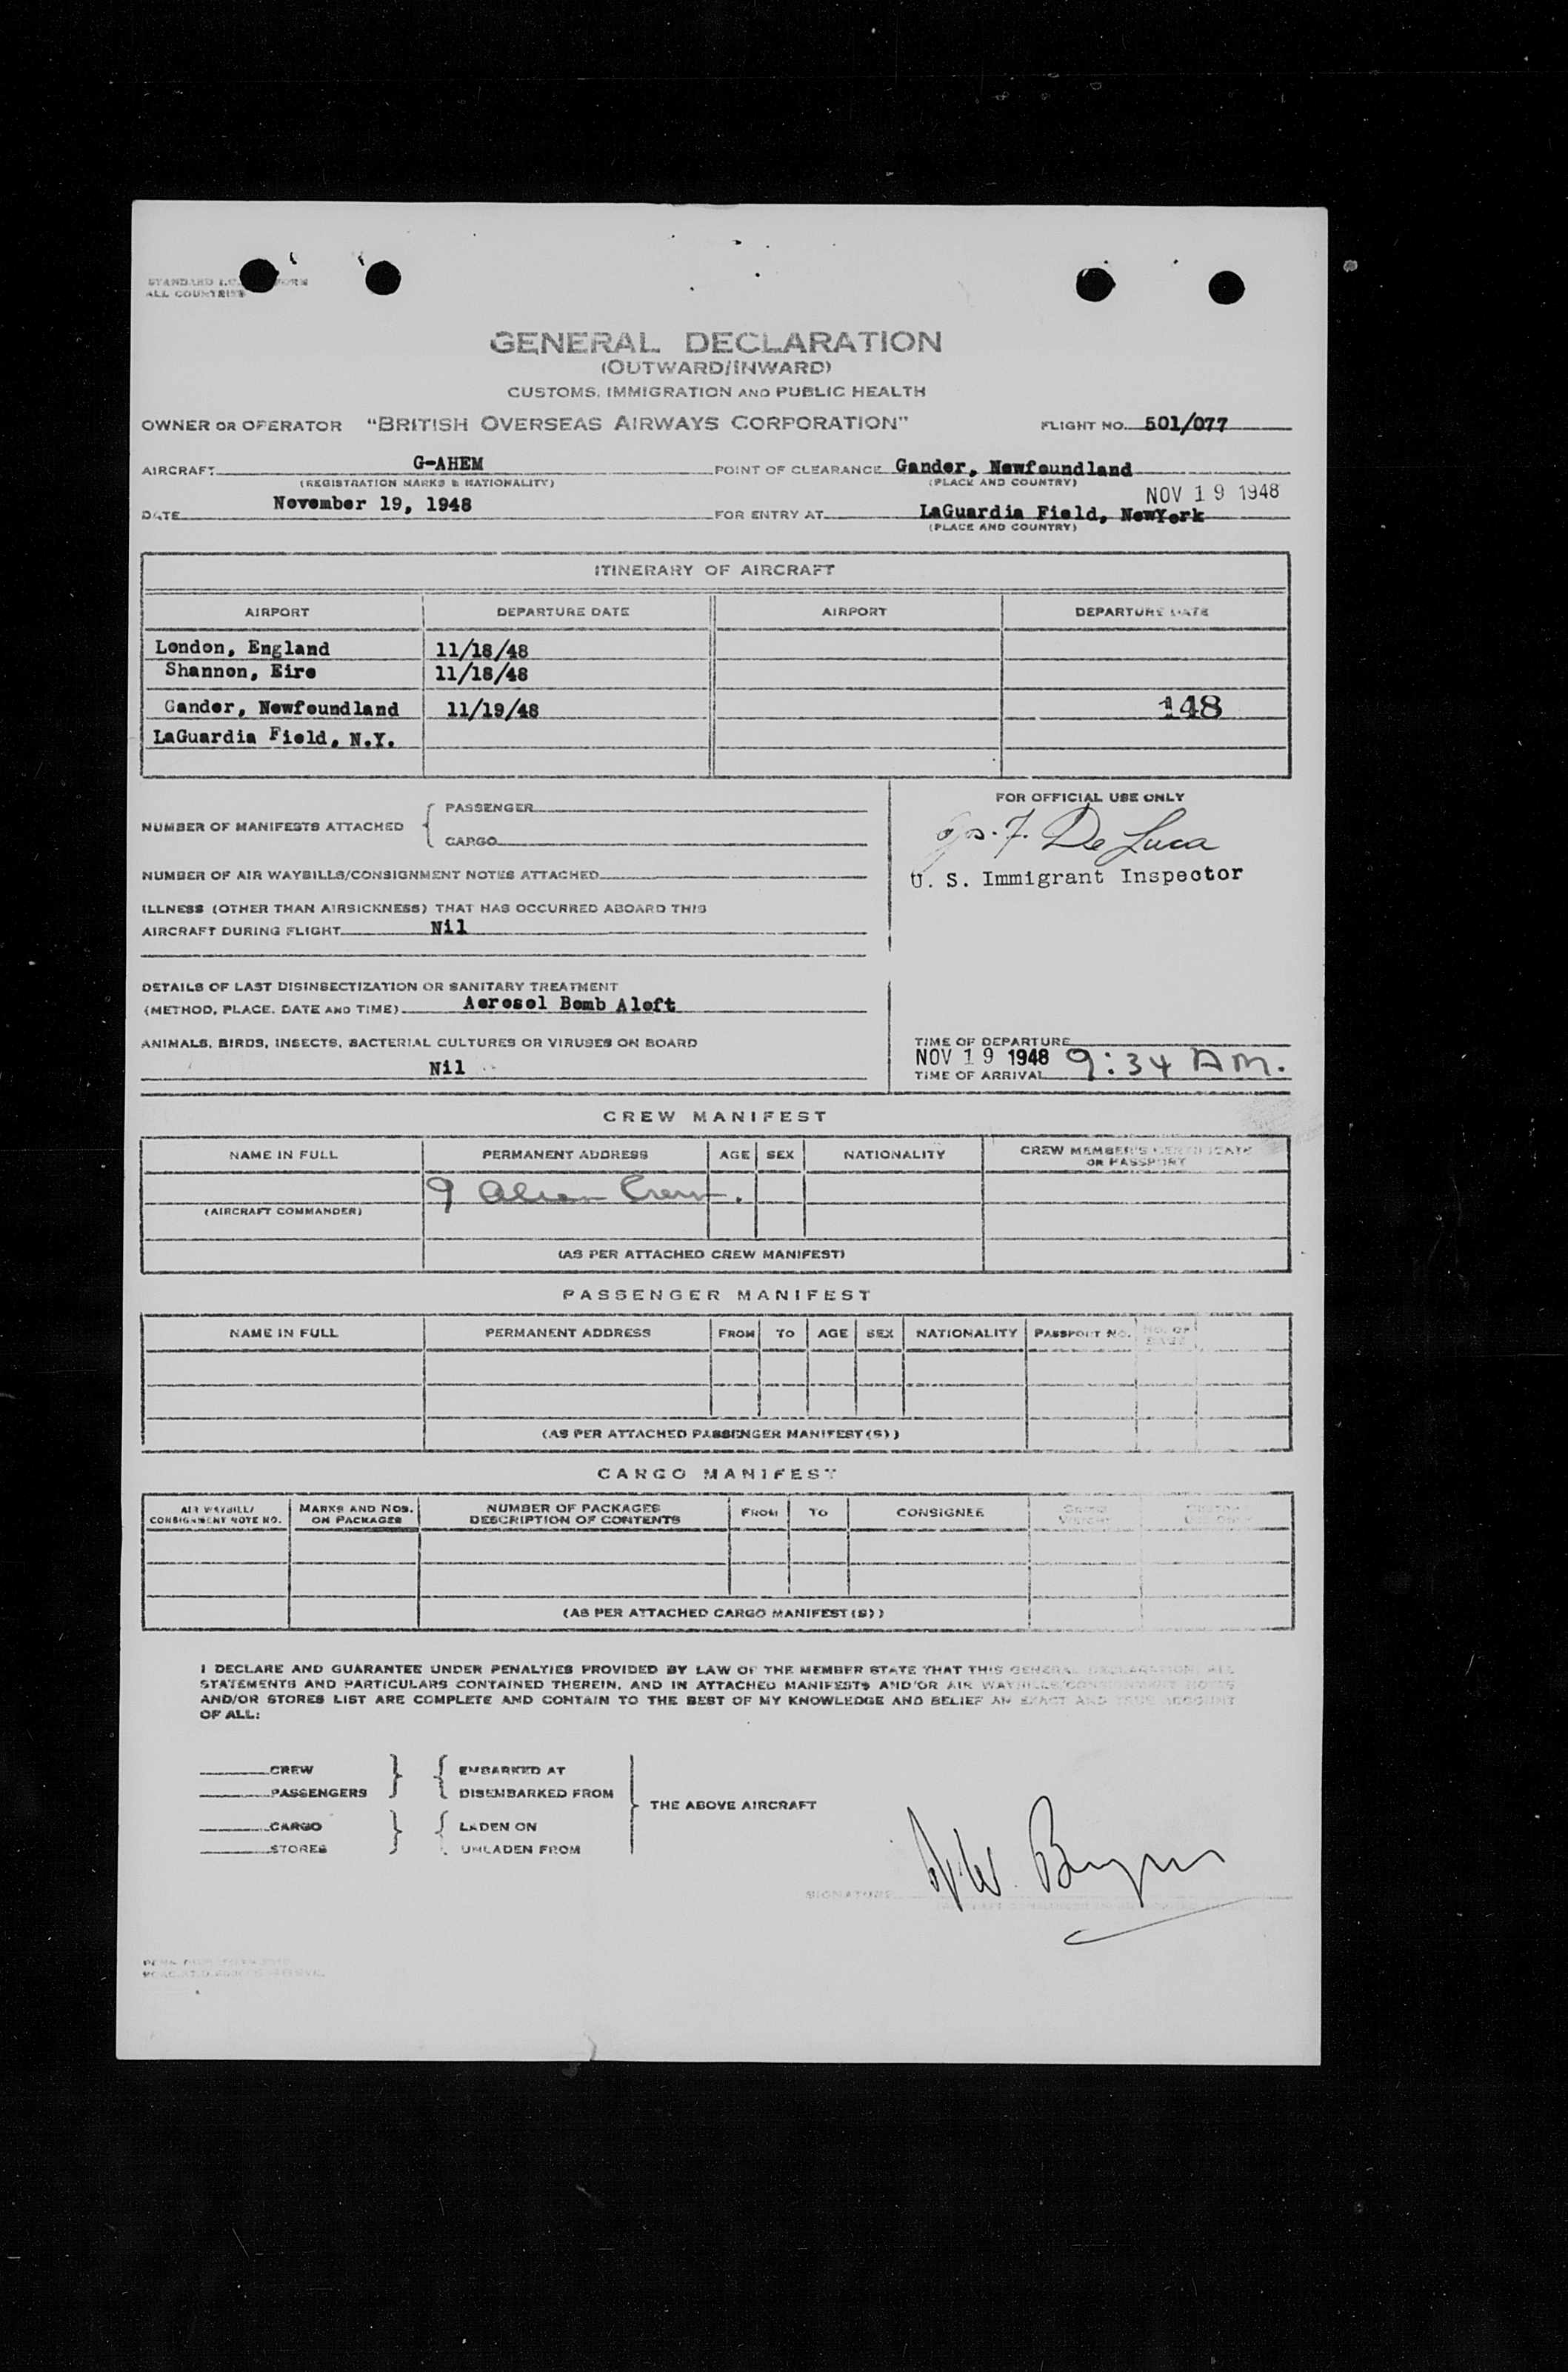 STANDARD FORM
ALL COUNTRIES
GENERAL DECLARATION
(OUTWARD/INWARD)
CUSTOMS, IMMIGRATION AND PUBLIC HEALTH
OWNER OR OPERATOR "BRITISH OVERSEAS AIRWAYS CORPORATION" FLIGHT NO. 501/077
AIRCRAFT G-AHEM POINT OF CLEARANCE Gander, Newfoundland
(REGISTRATION MARKS & NATIONALITY) (PLACE AND COUNTRY)
NOV 19 1948
DATE November 19, 1948 FOR ENTRY AT LaGuardia Field, NewYork
(PLACE AND COUNTRY)
ITINERARY OF AIRCRAFT
AIRPORT DEPARTURE DATE AIRPORT DEPARTURE DATE
London, England 11/18/48
Shannon, Eire 11/18/48
Gander, Newfoundland 11/19/48 148
LaGuardia Field, N.Y.
FOR OFFICIAL USE ONLY
NUMBER OF MANIFESTS ATTACHED { PASSENGER
CARGO
F. De Luca
U. S. Immigrant Inspector
NUMBER OF AIR WAYBILLS/CONSIGNMENT NOTES ATTACHED
ILLNESS (OTHER THAN AIRSICKNESS) THAT HAS OCCURRED ABOARD THIS
AIRCRAFT DURING FLIGHT Nil
DETAILS OF LAST DISINSECTIZATION OR SANITARY TREATMENT
(METHOD, PLACE, DATE AND TIME) Aerosol Bomb Aloft
ANIMALS, BIRDS, INSECTS, BACTERIAL CULTURES OR VIRUSES ON BOARD
Nil
TIME OF DEPARTURE
NOV 19 1948 9:34 AM.
TIME OF ARRIVAL
CREW MANIFEST
NAME IN FULL PERMANENT ADDRESS AGE SEX NATIONALITY CREW MEMBER'S CERTIFICATE
OR PASSPORT
9 Alien Crew.
(AIRCRAFT COMMANDER)
(AS PER ATTACHED CREW MANIFEST)
PASSENGER MANIFEST
NAME IN FULL PERMANENT ADDRESS FROM TO AGE SEX NATIONALITY PASSPORT NO. NO. OF
(AS PER ATTACHED PASSENGER MANIFEST(S))
CARGO MANIFEST
AIR WAYBILL/
CONSIGNMENT NOTE NO. MARKS AND NOS.
ON PACKAGES NUMBER OF PACKAGES
DESCRIPTION OF CONTENTS FROM TO CONSIGNEE
(AS PER ATTACHED CARGO MANIFEST(S))
I DECLARE AND GUARANTEE UNDER PENALTIES PROVIDED BY LAW OF THE MEMBER STATE THAT THIS GENERAL DECLARATION, ALL
STATEMENTS AND PARTICULARS CONTAINED THEREIN, AND IN ATTACHED MANIFESTS AND/OR AIR WAYBILLS/CONSIGNMENT NOTES
AND/OR STORES LIST ARE COMPLETE AND CONTAIN TO THE BEST OF MY KNOWLEDGE AND BELIEF AN EXACT AND TRUE ACCOUNT
OF ALL:
CREW } { EMBARKED AT
PASSENGERS DISEMBARKED FROM
THE ABOVE AIRCRAFT
CARGO } { LADEN ON
STORES UNLADEN FROM
SIGNATURE